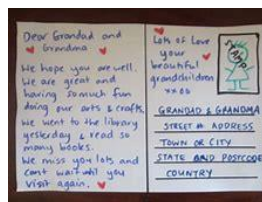 Dear Grandad and
Grandma
We hope you are well.
We are great and
having so much fun
doing our arts & crafts.
We went to the library
yesterday & read so
many books.
We miss you lots and
cant wait until you
visit again.
Lots of Love
your
beautiful
grandchildren
xxoo
GRANDAD & GRANDMA
STREET # ADDRESS
TOWN OR CITY
STATE AND POSTCODE
COUNTRY